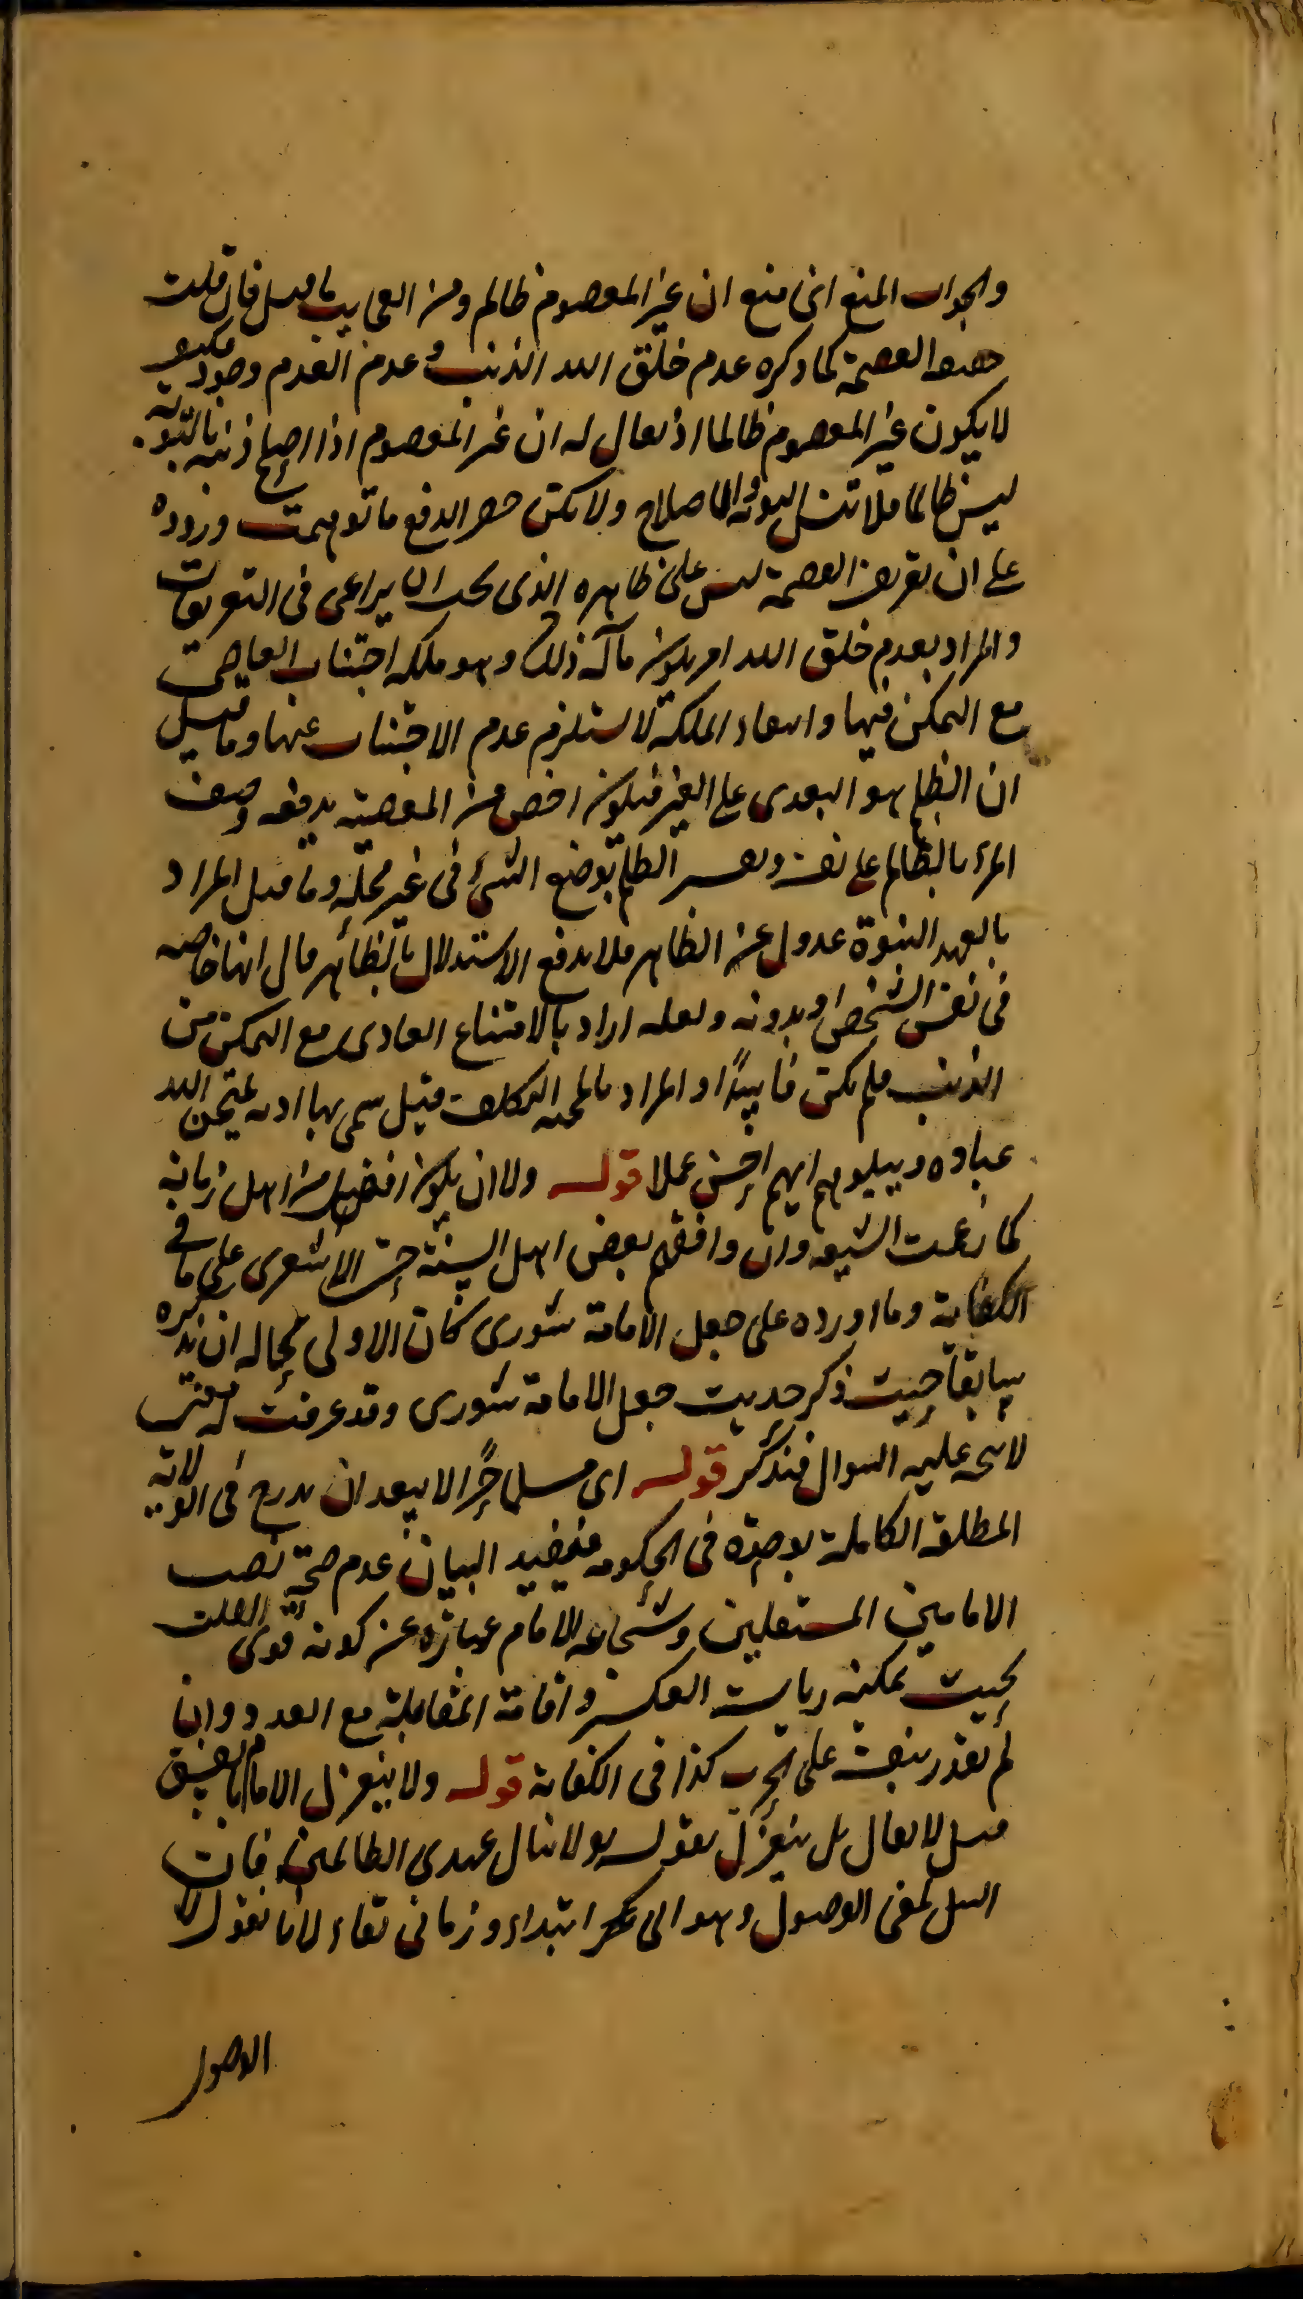 والجواب المنع اى منع ان غير المعصوم ظالم ومن العجايب ما قيل فان قلت
حقيقة العصمة كما ذكره عدم خلق الله الذنب وعدم العدم وجود فكيف
لا يكون غير المعصوم ظالما اذ يقال له ان غير المعصوم اذا اصلح ذنبه بالتوبة
ليس ظالما فلا تنس التوبة والاصلاح ولا تكن حين الدفع ما توهمت وروده
على ان تعريف العصمة ليس على ظاهره الذى يجب ان يراعى فى التعريفات
والمراد بعدم خلق الله امر يكون مآله ذلك وهو ملكة اجتناب المعاصى
مع التمكن فيها وانتفاء الملكة لا يستلزم عدم الاجتناب عنها وما قيل
ان الظلم هو التعدى على الغير فيكون اخص من المعصية يدفعه وصف
المرء بالظالم على نفسه وتفسير الظلم بوضع الشئ فى غير محله وما قيل المراد
بالعهد النبوة عدول عن الظاهر فلا يدفع الاستدلال بالظاهر قال انها خاصة
فى نفس الشخص او بدونه ولعله اراد بالامتناع العادى مع التمكن من
الذنب فلم يكن فاسدا والمراد بالمحنة التكليف قيل سمى بها اذ به يمتحن الله
عباده ويبلوهم ايهم احسن عملا قوله ولا ان يكون افضل من اهل زمانه
كما زعمت الشيعة وان وافقهم بعض اهل السنة حتى الاشعرى على ما فى
الكفاية وما اورده على جعل الامامة شورى كان الاولى بحاله ان يذكره
سابقا حيث ذكر حديث جعل الامامة شورى وقد عرفت له معنى
لا يتجه عليه السوال فتذكر قوله اى مسلما حرا لا يبعد ان يدرج فى الولاية
المطلقة الكاملة توحده فى الحكومة فيفيد البيان عدم صحة نصب
الامامين المستقلين وشجاعة الامام عبارة عن كونه قوى القلب
بحيث يمكنه رياسة العسكر واقامة المقابلة مع العدو وان
لم يقدر بنفسه على الحرب كذا فى الكفاية قوله ولا ينعزل الامام بالفسق
قيل لا يقال بل ينعزل بقوله ولا ينال عهدى الظالمين فان
النيل بمعنى الوصول وهو آنى ابتداء وزمانى بقاء لانا نقول لا
الوصول